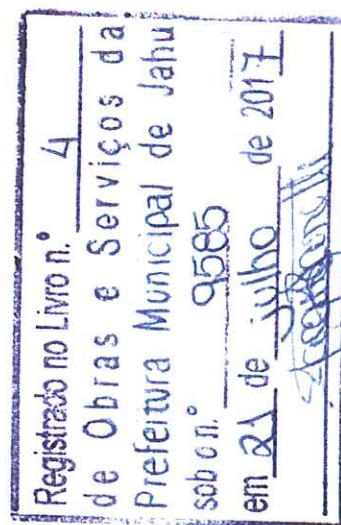 Registrado no Livro n.º 4
de Obras e Serviços da
Prefeitura Municipal de Jahu
sob o n.º 9585
em 21 de julho de 2017